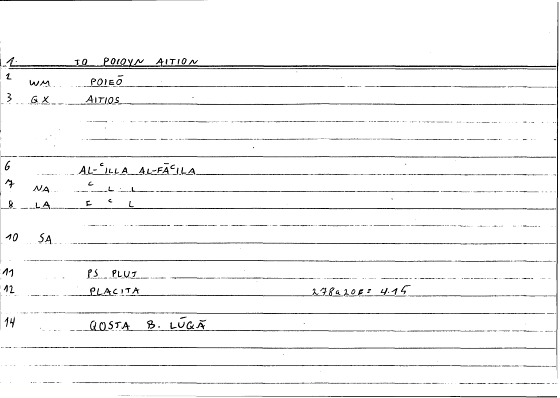 1 TO POIOYN AITION
2 WM POIEŌ
3 GX AITIOS
6 AL-ʿILLA AL-FĀʿILA
7 NA ʿ L L
8 LA F ʿ L
10 SA
11 PS PLUT
12 PLACITA 278a20f= 4.15
14 QOSTA B. LŪQĀ